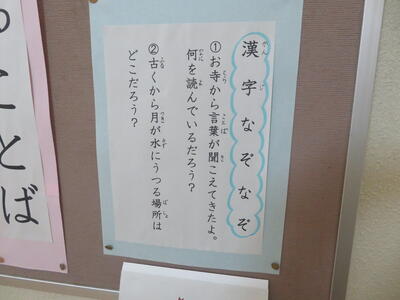 漢字なぞなぞ
①お寺から言葉が聞こえてきたよ。
何を読んでいるだろう?
②古くから月が水にうつる場所は
どこだろう?
ことば